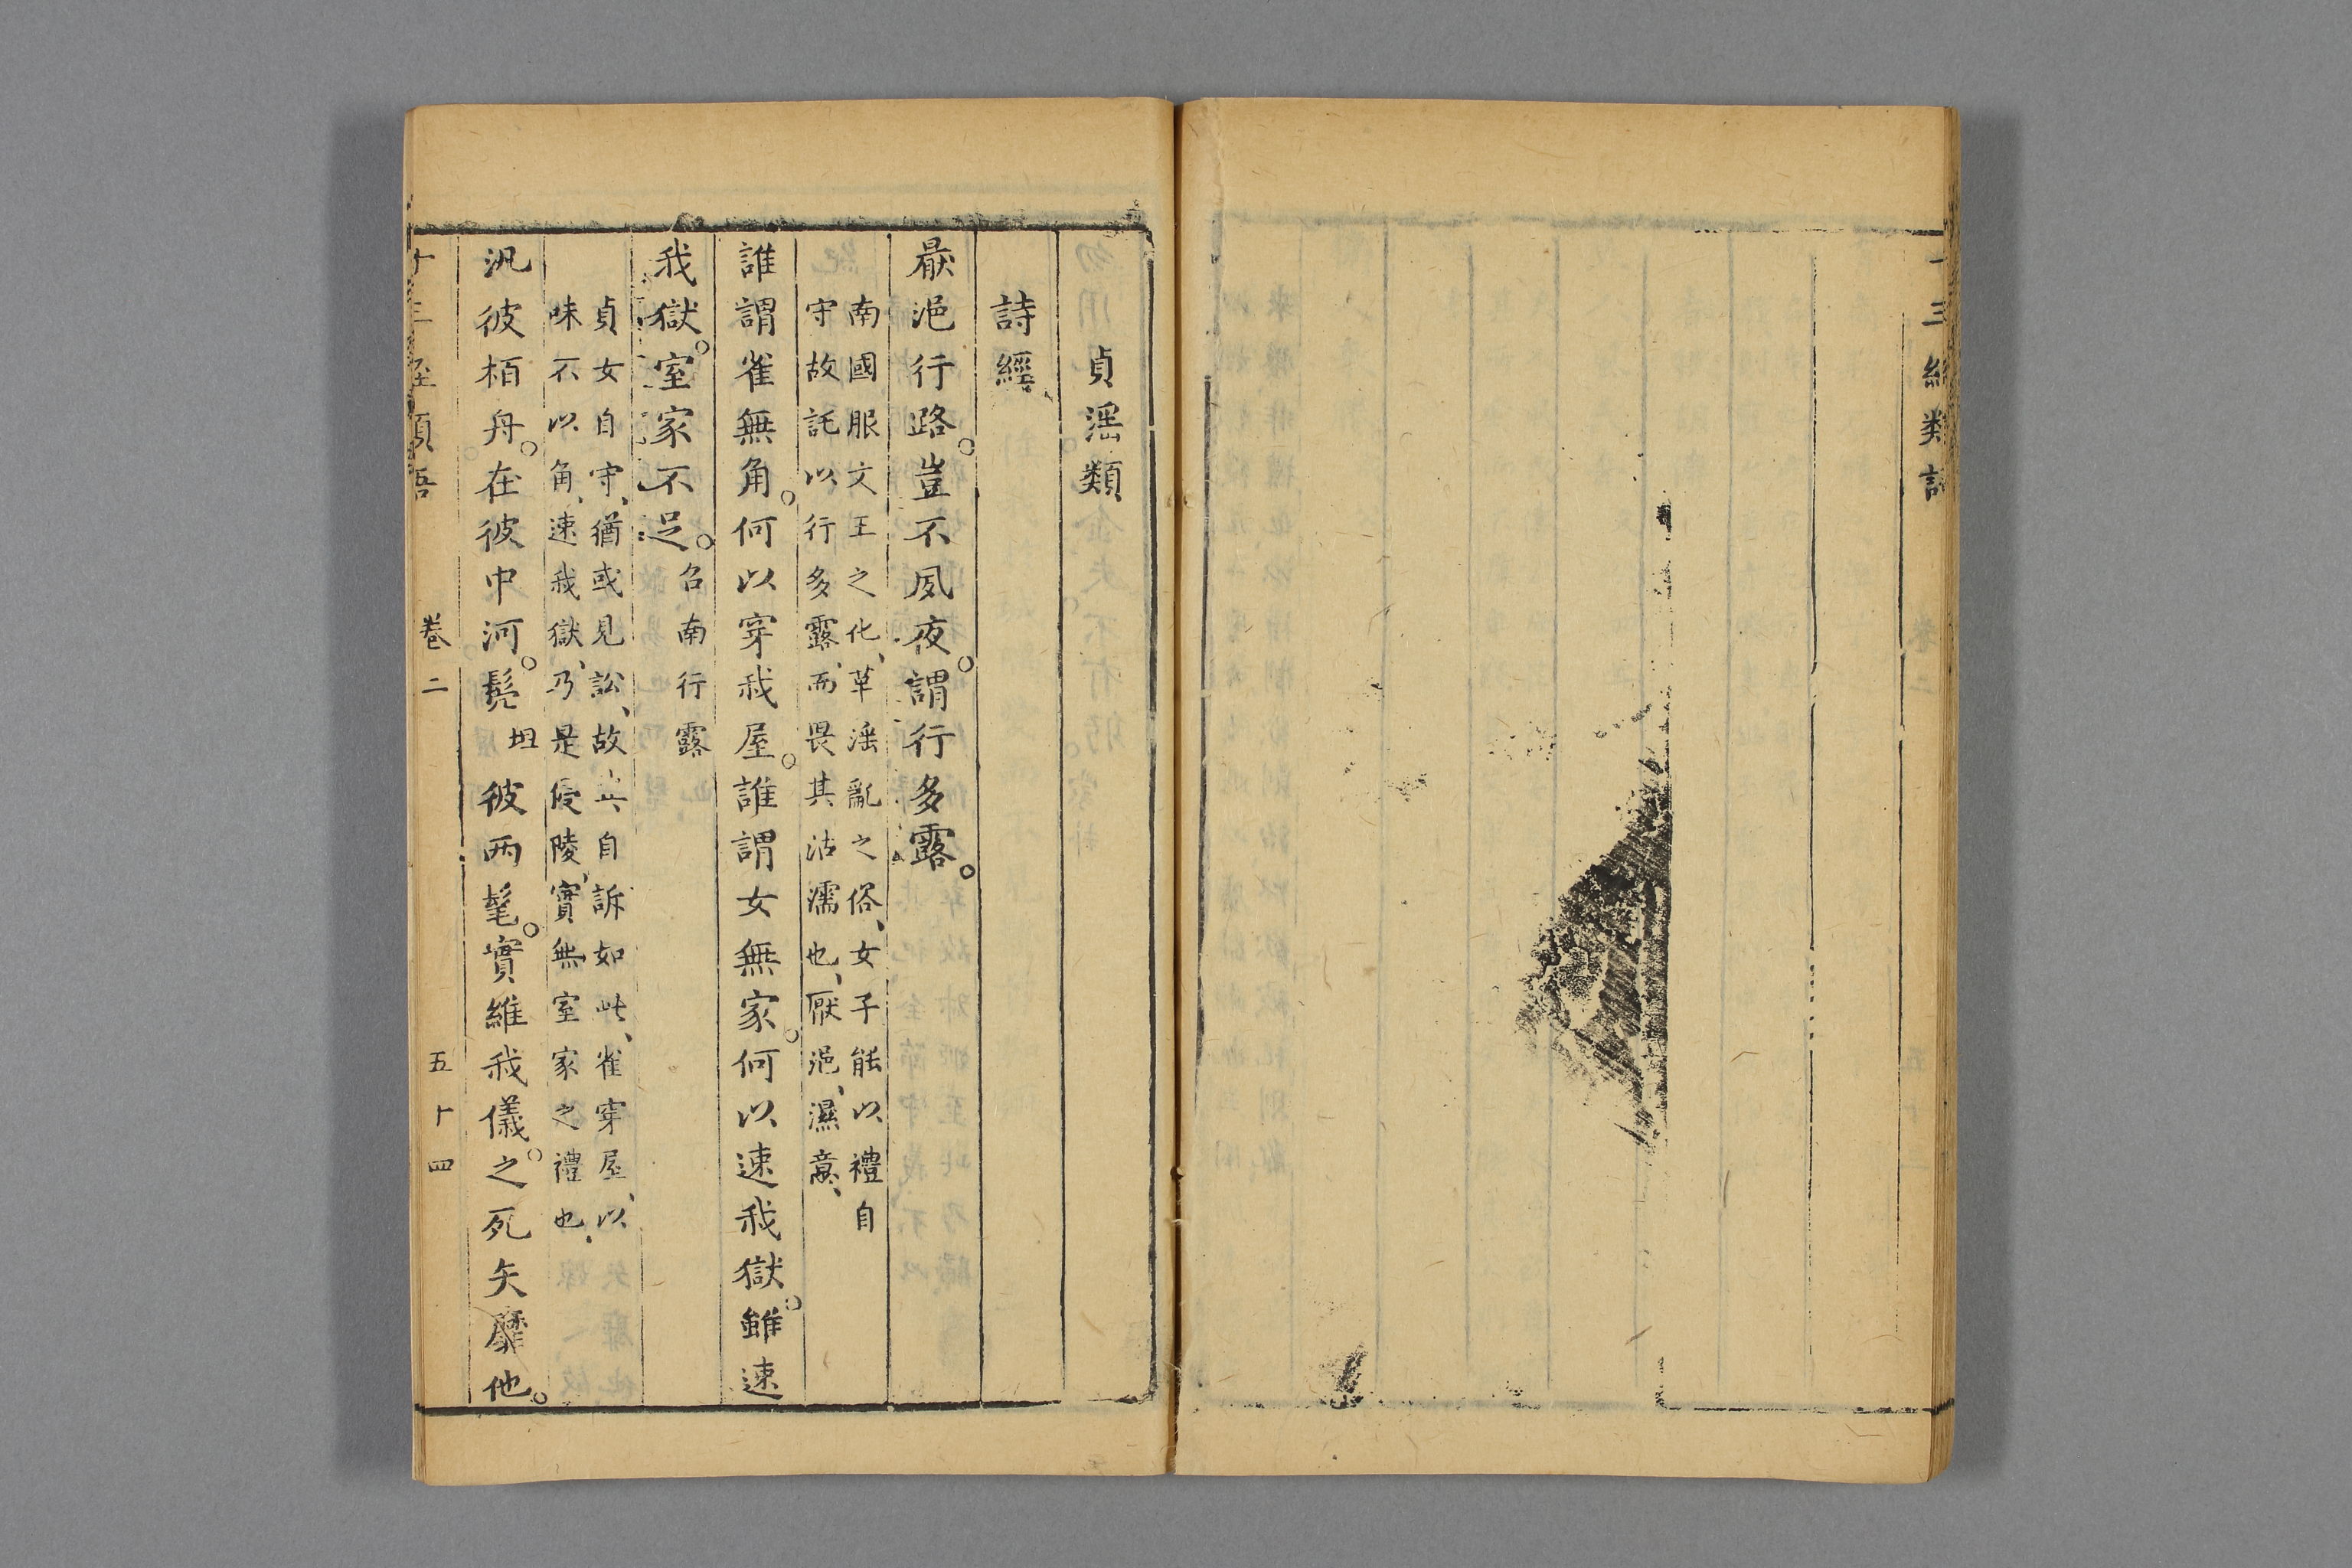 十三經類語
貞滛類
詩經
厭浥行路。豈不夙夜。謂行多露。
南國服文王之化、革滛亂之俗、女子能以禮自
守故託以行多露、而畏其沾濡也、厭浥、濕意、
誰謂雀無角。何以穿我屋。誰謂女無家。何以速我獄。雖速
我獄。室家不足。召南行露
貞女自守、猶或見訟、故其自訴如此、雀穿屋、以
味不以角、速我獄、乃是侵陵、實無室家之禮也、
汎彼栢舟。在彼中河。髧彼兩髦。實維我儀。之死矢靡他。
十三經類語 卷二 五十四